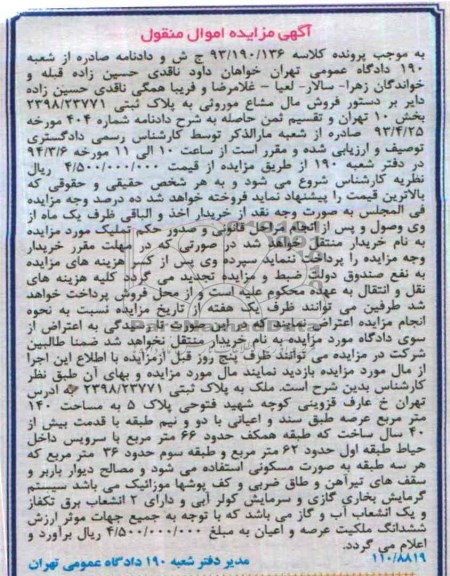 آگهی مزایده اموال منقول
به موجب پرونده کلاسه ۹۳/۱۹۰/۱۳۶ ج ش و دادنامه صادره از شعبه
۱۹۰ دادگاه عمومی تهران خواهان داود ناقدی حسین زاده قبله و
خواندگان زهرا- سالار- لعیا – غلامرضا و فریبا همگی ناقدی حسین زاده
دایر بر دستور فروش مال مشاع موروثی به پلاک ثبتی ۲۳۹۸/۲۳۷۷۱
بخش ۱۰ تهران و تقسیم ثمن حاصله به شرح دادنامه شماره ۴۰۴ مورخه
۹۳/۴/۲۵ صادره از شعبه مارالذکر توسط کارشناس رسمی دادگستری
توصیف و ارزیابی شده و مقرر است از ساعت ۱۰ الی ۱۱ مورخه ۹۴/۳/۶
در دفتر شعبه ۱۹۰ از طریق مزایده از قیمت ۴/۵۰۰/۰۰۰/۰۰۰ ریال
نظریه کارشناس شروع می شود و به هر شخص حقیقی و حقوقی که
بالاترین قیمت را پیشنهاد نماید فروخته خواهد شد ده درصد وجه مزایده
فی المجلس به صورت وجه نقد از خریدار اخذ و الباقی ظرف یک ماه از
وی وصول و پس از انجام مراحل قانونی و صدور حکم تملیک مورد مزایده
به نام خریدار منتقل خواهد شد در صورتی که در مهلت مقرر خریدار
وجه مزایده را پرداخت ننماید سپرده وی پس از کسر هزینه های مزایده
به نفع صندوق دولت ضبط و مزایده تجدید می گردد کلیه هزینه های
نقل و انتقال به عهده محکوم علیه است و از محل فروش پرداخت خواهد
شد طرفین می توانند ظرف یک هفته از تاریخ مزایده نسبت به نحوه
انجام مزایده اعتراض نمایند که در این صورت تا رسیدگی به اعتراض از
سوی دادگاه مورد مزایده به نام خریدار منتقل نخواهد شد ضمنا طالبین
شرکت در مزایده می توانند ظرف پنج روز قبل ازمزایده با اطلاع این اجرا
از مال مورد مزایده بازدید نمایند مال مورد مزایده و بهای آن طبق نظر
کارشناس بدین شرح است. ملک به پلاک ثبتی ۲۳۹۸/۲۳۷۷۱ به ادرس
تهران خ عارف قزوینی کوچه شهید فتوحی پلاک ۵ به مساحت ۱۴۰
متر مربع عرصه طبق سند و اعیانی با دو و نیم طبقه با قدمت بیش از
۴۰ سال ساخت که طبقه همکف حدود ۶۶ متر مربع با سرویس داخل
حیاط طبقه اول حدود ۶۲ متر مربع و طبقه سوم حدود ۳۶ متر مربع که
هر سه طبقه به صورت مسکونی استفاده می شود و مصالح دیوار باربر و
سقف های تیرآهن و طاق ضربی و کف پوشها موزائیک می باشد سیستم
گرمایش بخاری گازی و سرمایش کولر آبی و دارای ۲ انشعاب برق تکفاز
و یک انشعاب آب و گاز می باشد که با توجه به جمیع جهات موثر ارزش
ششدانگ ملکیت عرصه و اعیان به مبلغ ۴/۵۰۰/۰۰۰/۰۰۰ ریال برآورد و
اعلام می گردد.
۱۱۰/۸۸۱۹ مدیر دفتر شعبه ۱۹۰ دادگاه عمومی تهران